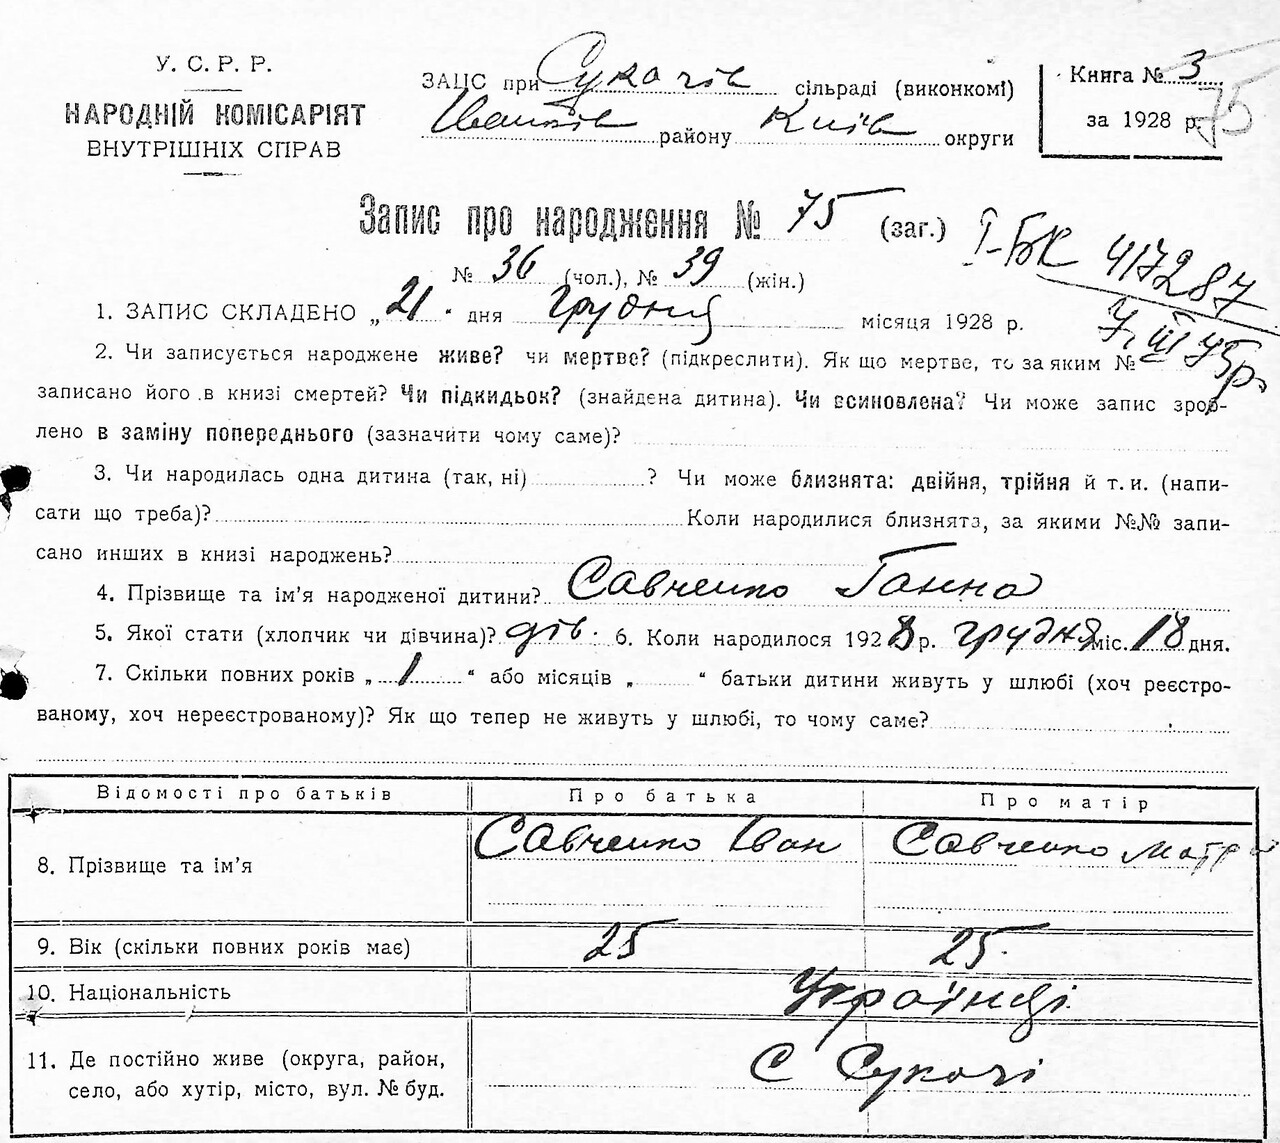 У. С. Р. Р.
НАРОДНІЙ КОМІСАРІЯТ
ВНУТРІШНІХ СПРАВ
ЗАЦС при Сукачів сільраді (виконкомі)
Іванків району Київ округи
Книга № 3
за 1928 р.
75
Запис про народження № 75 (заг.)
І-БК 417287
№ 36 (чол.), № 39 (жін.)
7. III 75р.
1. ЗАПИС СКЛАДЕНО „21“ дня грудня місяця 1928 р.
2. Чи записується народжене живе? чи мертве? (підкреслити). Як що мертве, то за яким №
записано його в книзі смертей? Чи підкидьок? (знайдена дитина). Чи всиновлена? Чи може запис зроб-
лено в заміну попереднього (зазначити чому саме)?
3. Чи народилась одна дитина (так, ні) ? Чи може близнята: двійня, трійня й т. и. (напи-
сати що треба)? Коли народилися близнята, за якими №№ запи-
сано инших в книзі народжень?
4. Прізвище та ім’я народженої дитини? Савченко Ганна
5. Якої стати (хлопчик чи дівчина)? дів. 6. Коли народилося 1928 р. грудня міс. 18 дня.
7. Скільки повних років „ 1 “ або місяців „ “ батьки дитини живуть у шлюбі (хоч реєстро-
ваному, хоч нереєстрованому)? Як що тепер не живуть у шлюбі, то чому саме?
Відомості про батьків Про батька Про матір
8. Прізвище та ім’я Савченко Іван Савченко Матр
9. Вік (скільки повних років має) 25 25.
10. Національність Українці
11. Де постійно живе (округа, район, С Сукачі
село, або хутір, місто, вул. № буд.